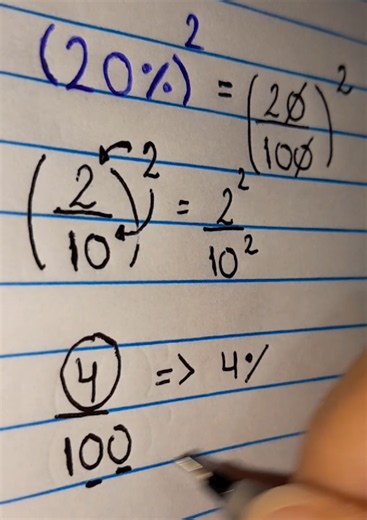 (20%)² = (20/100)²
(2/10)² = 2²/10²
4/100 => 4%